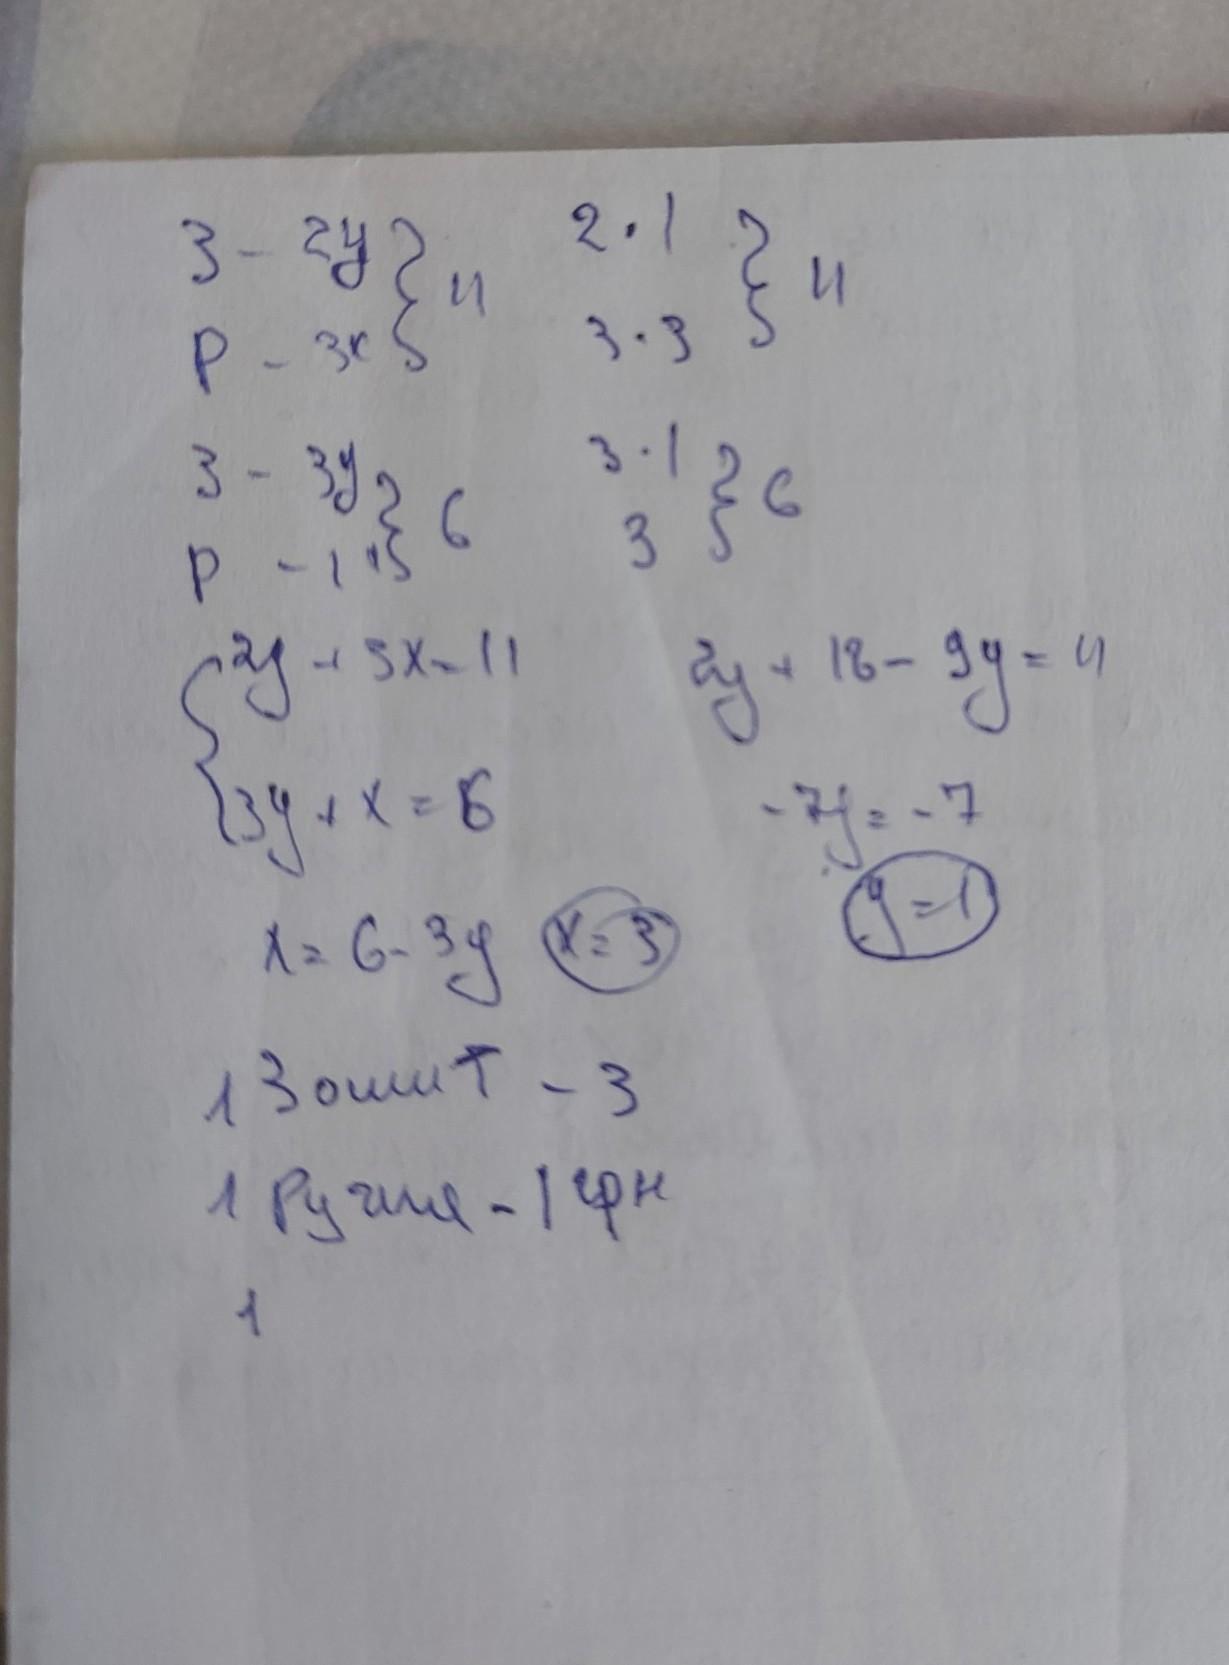 З - 2y } 11 2·1 } 11
Р - 3x 3·3
З - 3y } 6 3·1 } 6
Р - 1x 3
{ 2y + 3x = 11 2y + 18 - 9y = 11
3y + x = 6 -7y = -7
y = 1
x = 6 - 3y x = 3
1 Зошит - 3
1 Ручка - 1 грн
1